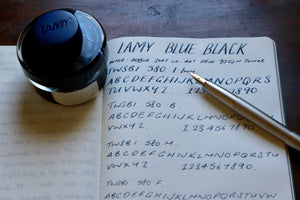 LAMY
LAMY BLUE BLACK
TWSBI 580 1.1mm
ABCDEFGHIJKLMNOPQRS
TUVWXYZ 1234567890.
TWSBI 580 B.
ABCDEFGHIJKLMNOP
VWXYZ. 1234567890.
TWSBI 580 M.
ABCDEFGHIJKLMNOPQRSTU
VWXYZ. 1234567890.
TWSBI 580 F
ABCDEFGHIJKLMNOPQRSTUVW